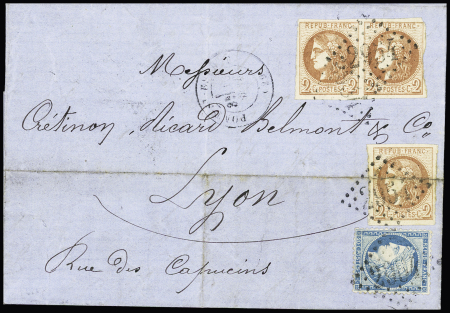 REPUB · FRANC · REPUB · FRANC ·
2 POSTES C. 2 POSTES C. 2
Messieurs
Crétinon, Ricard, Belmont & Co
REPUB · FRANC ·
2 POSTES C. 2
Lyon
Rue des Capucins